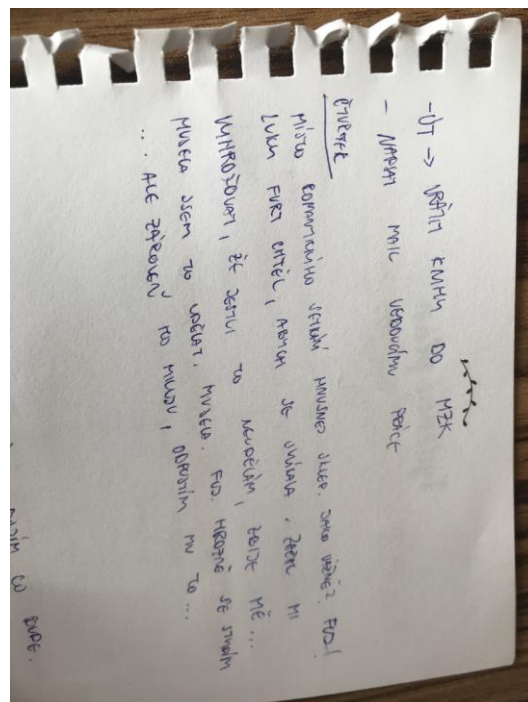 - ÚT -> VRÁTIT KNIHU DO MZK
- NAPSAT MAIL VEDOUCÍMU PRÁCE
ČTVRTEK
MÍSTO ROMANTICKÉHO SETKÁNÍ HNUSNEJ SKLEP. JAKO VÁŽNĚ? FUJ!
LUKY FURT CHTĚL, ABYCH SE SVLÍKALA. ZAČAL MI
VYHROŽOVAT, ŽE JESTLI TO NEUDĚLÁM, ZBIJE MĚ...
MUSELA JSEM TO UDĚLAT. MUSELA. FUJ. HROZNĚ SE STYDÍM
... ALE ZÁROVEŇ HO MILUJU, ODPUSTÍM MU TO...
CO BUDE.